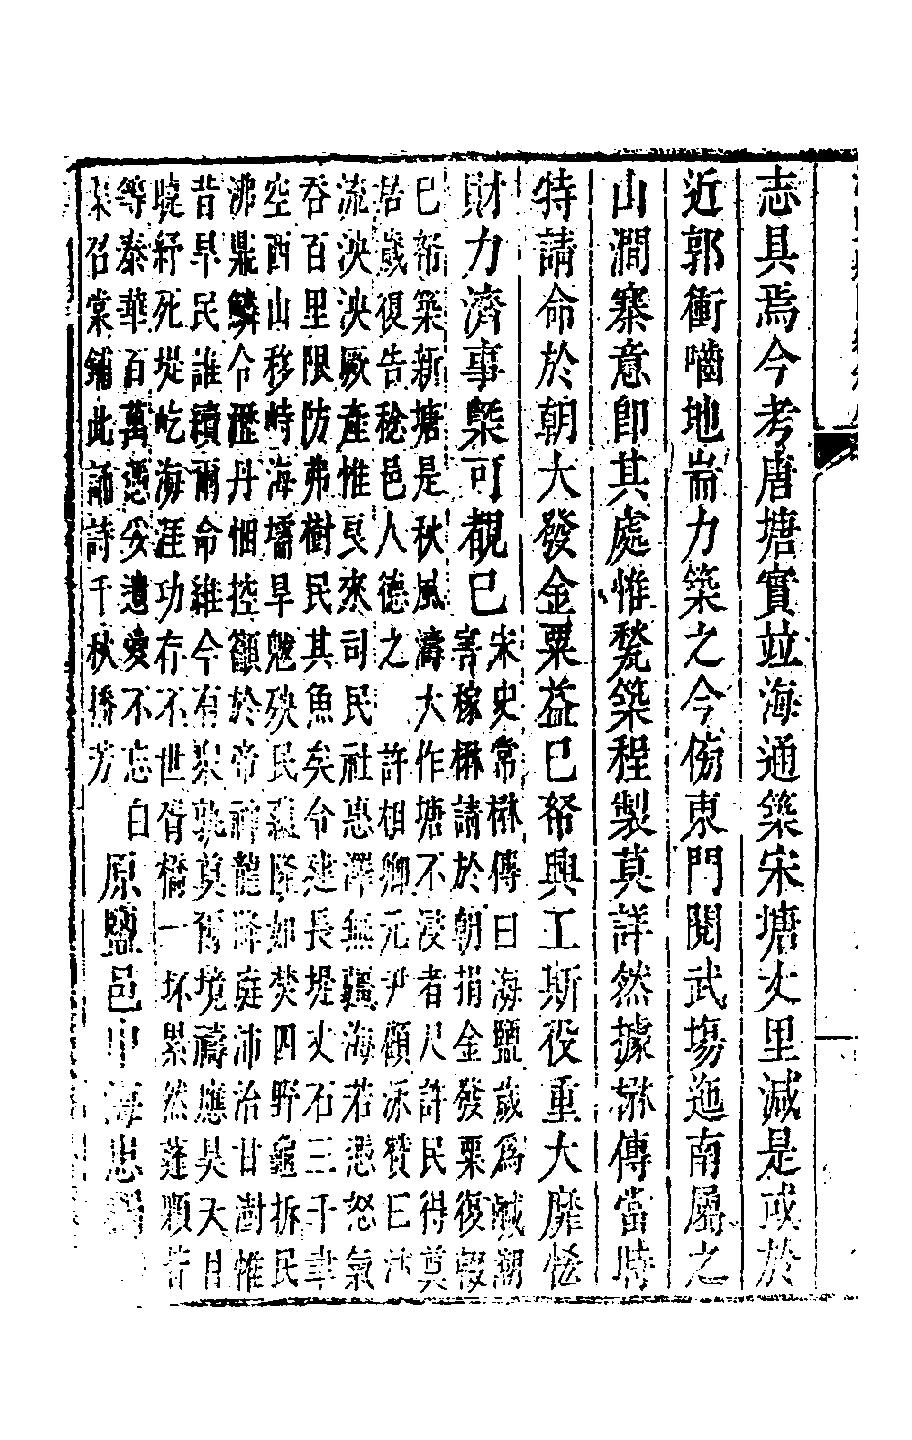 志具焉今考唐塘實並海通築宋塘丈里減是或於
近郭衝嚙地耑力築之今傍東門閱武塲迤南屬之
山澗寨意卽其處惟甃築程製莫詳然據楙傳當時
特請命於朝大發金粟益巳帑興工斯役重大靡恡
財力濟事槩可覩巳
宋史常楙傳曰海鹽歲爲鹹潮
害稼楙請於朝捐金發粟復輟
巳帑築新塘是秋風濤大作塘不浸者尺許民得莫
居歲復告稔邑人德之 許相卿元尹顧泳贊曰
流泱泱厥産惟 來司民社惠澤無疆海若憑怒氣
吞百里限防弗樹民其魚矣令建長堤丈石三千聿
空西山移峙海壖旱魃殃民蘊隆如焚四野龜拆民
沸鼎鱗令瀝丹悃控籲於帝神龍降庭沛治甘澍惟
昔旱民誰續爾命維今有衆孰莫舊境禱應昊天目
紓死堤屹海涯功存不世胥橋一坏累然蓬顆昔
等泰華百萬憑妥遺愛不忘白
召棠鋪此誦詩千秋播芳
原鹽邑中海忠